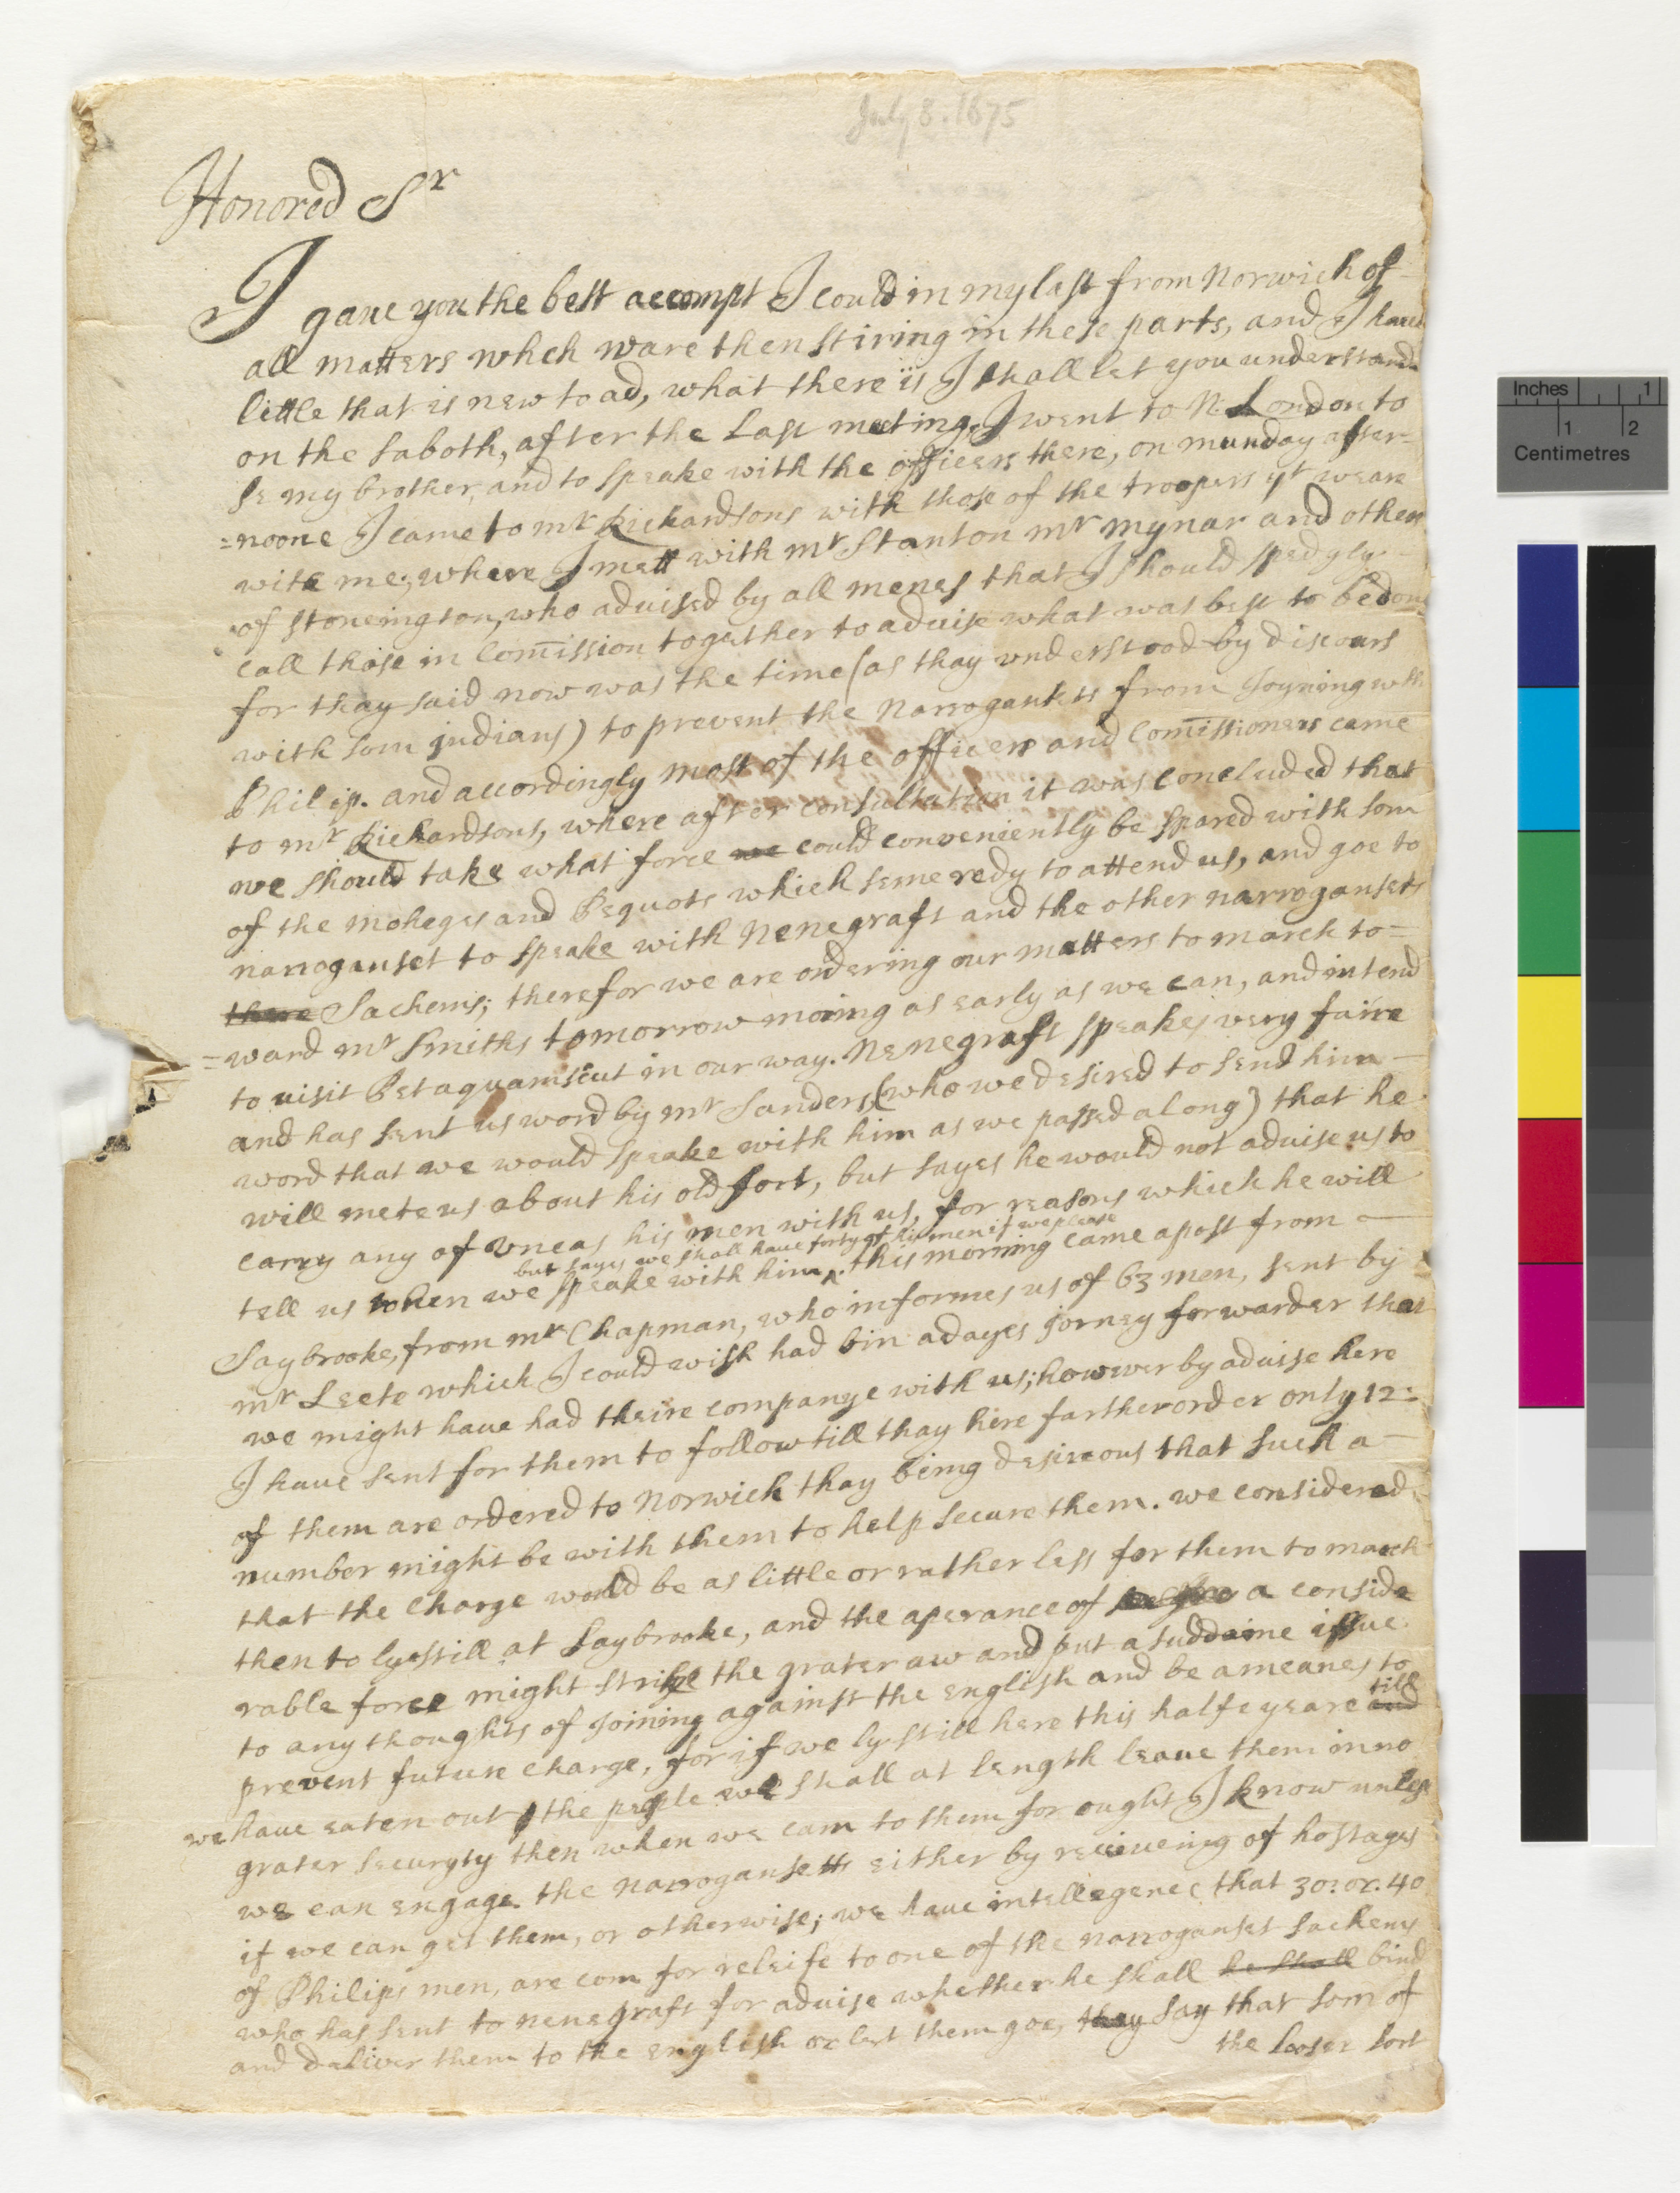 July 8. 1675
Honored Sr
I gaue you the best accompt I could in my last from Norwich of
all matters whch ware then stiring in these parts, and I haue
little that is new to ad, what there is I shall let you understand
on the saboth, after the last meeting, I went to N: London to
se my brother, and to speake with the officers there, on munday after=
=noone I came to mr Richardsons with those of the troopers yt weare
with me; where I mett with mr Stanton mr mynar and others
of stoneington, who aduised by all menes that I should spedyly
call those in Com̅ission together to aduise what was best to be don
for thay said now was the time (as thay vnderstood by discours
with som jndians) to prevent the Narrogansets from Joyning wth
Philip. and accordingly most of the officers and Com̅issioners came
to mr Richardsons, where after consultation it was concluded that
we should take what force we could conveniently be spared with som
of the moheges and Pequots which seme redy to attend us, and goe to
narroganset to speake with Nenegraft and the other narrogansets
there Sachems; therefor we are ordering our matters to march to=
=ward mr Smiths tomorrow moring as early as we can, and intend
to uisit Petaquamscut in our way. Nenegraft speakes very faire
and has sent us word by mr Sanders, (who we desired to send him
word that we would speake with him as we passed along) that he
will mete us about his old fort, but sayes he would not aduise us to
carry any of vncas his men with us, for reasons which he will
but sayes we shall haue forty of his men if we please
tell us when we speake with him ^. this morning came a post from
Saybrooke, from mr Chapman, who informes us of 63 men, sent by
mr Leete which I could wish had bin a dayes jorney forwarder that
we might haue had theire companye with us; howwer by aduise here
I haue sent for them to follow till thay hire farther order only 12:
of them are ordered to Norwich thay being desireous that such a
number might be with them to help secure them. we considered
that the charge would be as little or rather less for them to march
then to ly still at Saybrooke, and the aperance of a conside
rable force might strike the grater aw and put a suddaine issue
to any thoughts of joining against the english and be a meanes to
till
prevent future charge, for if we ly still here this halfe yeare and
we haue eaten out the people we shall at length leaue them in no
grater securyty then when we cam to them for ought I know unless
we can engage the narrogansetts either by receiueing of hostages
if we can get them, or otherwise; we haue intellegence that 30: or. 40
of Philips men, are com for releife to one of the narroganset sachems
who has sent to nenegraft for aduise whether he shall he shall bind
and daliver them to the english or let them goe, thay say that som of
the looser sort
Inches 1
1 2
Centimetres